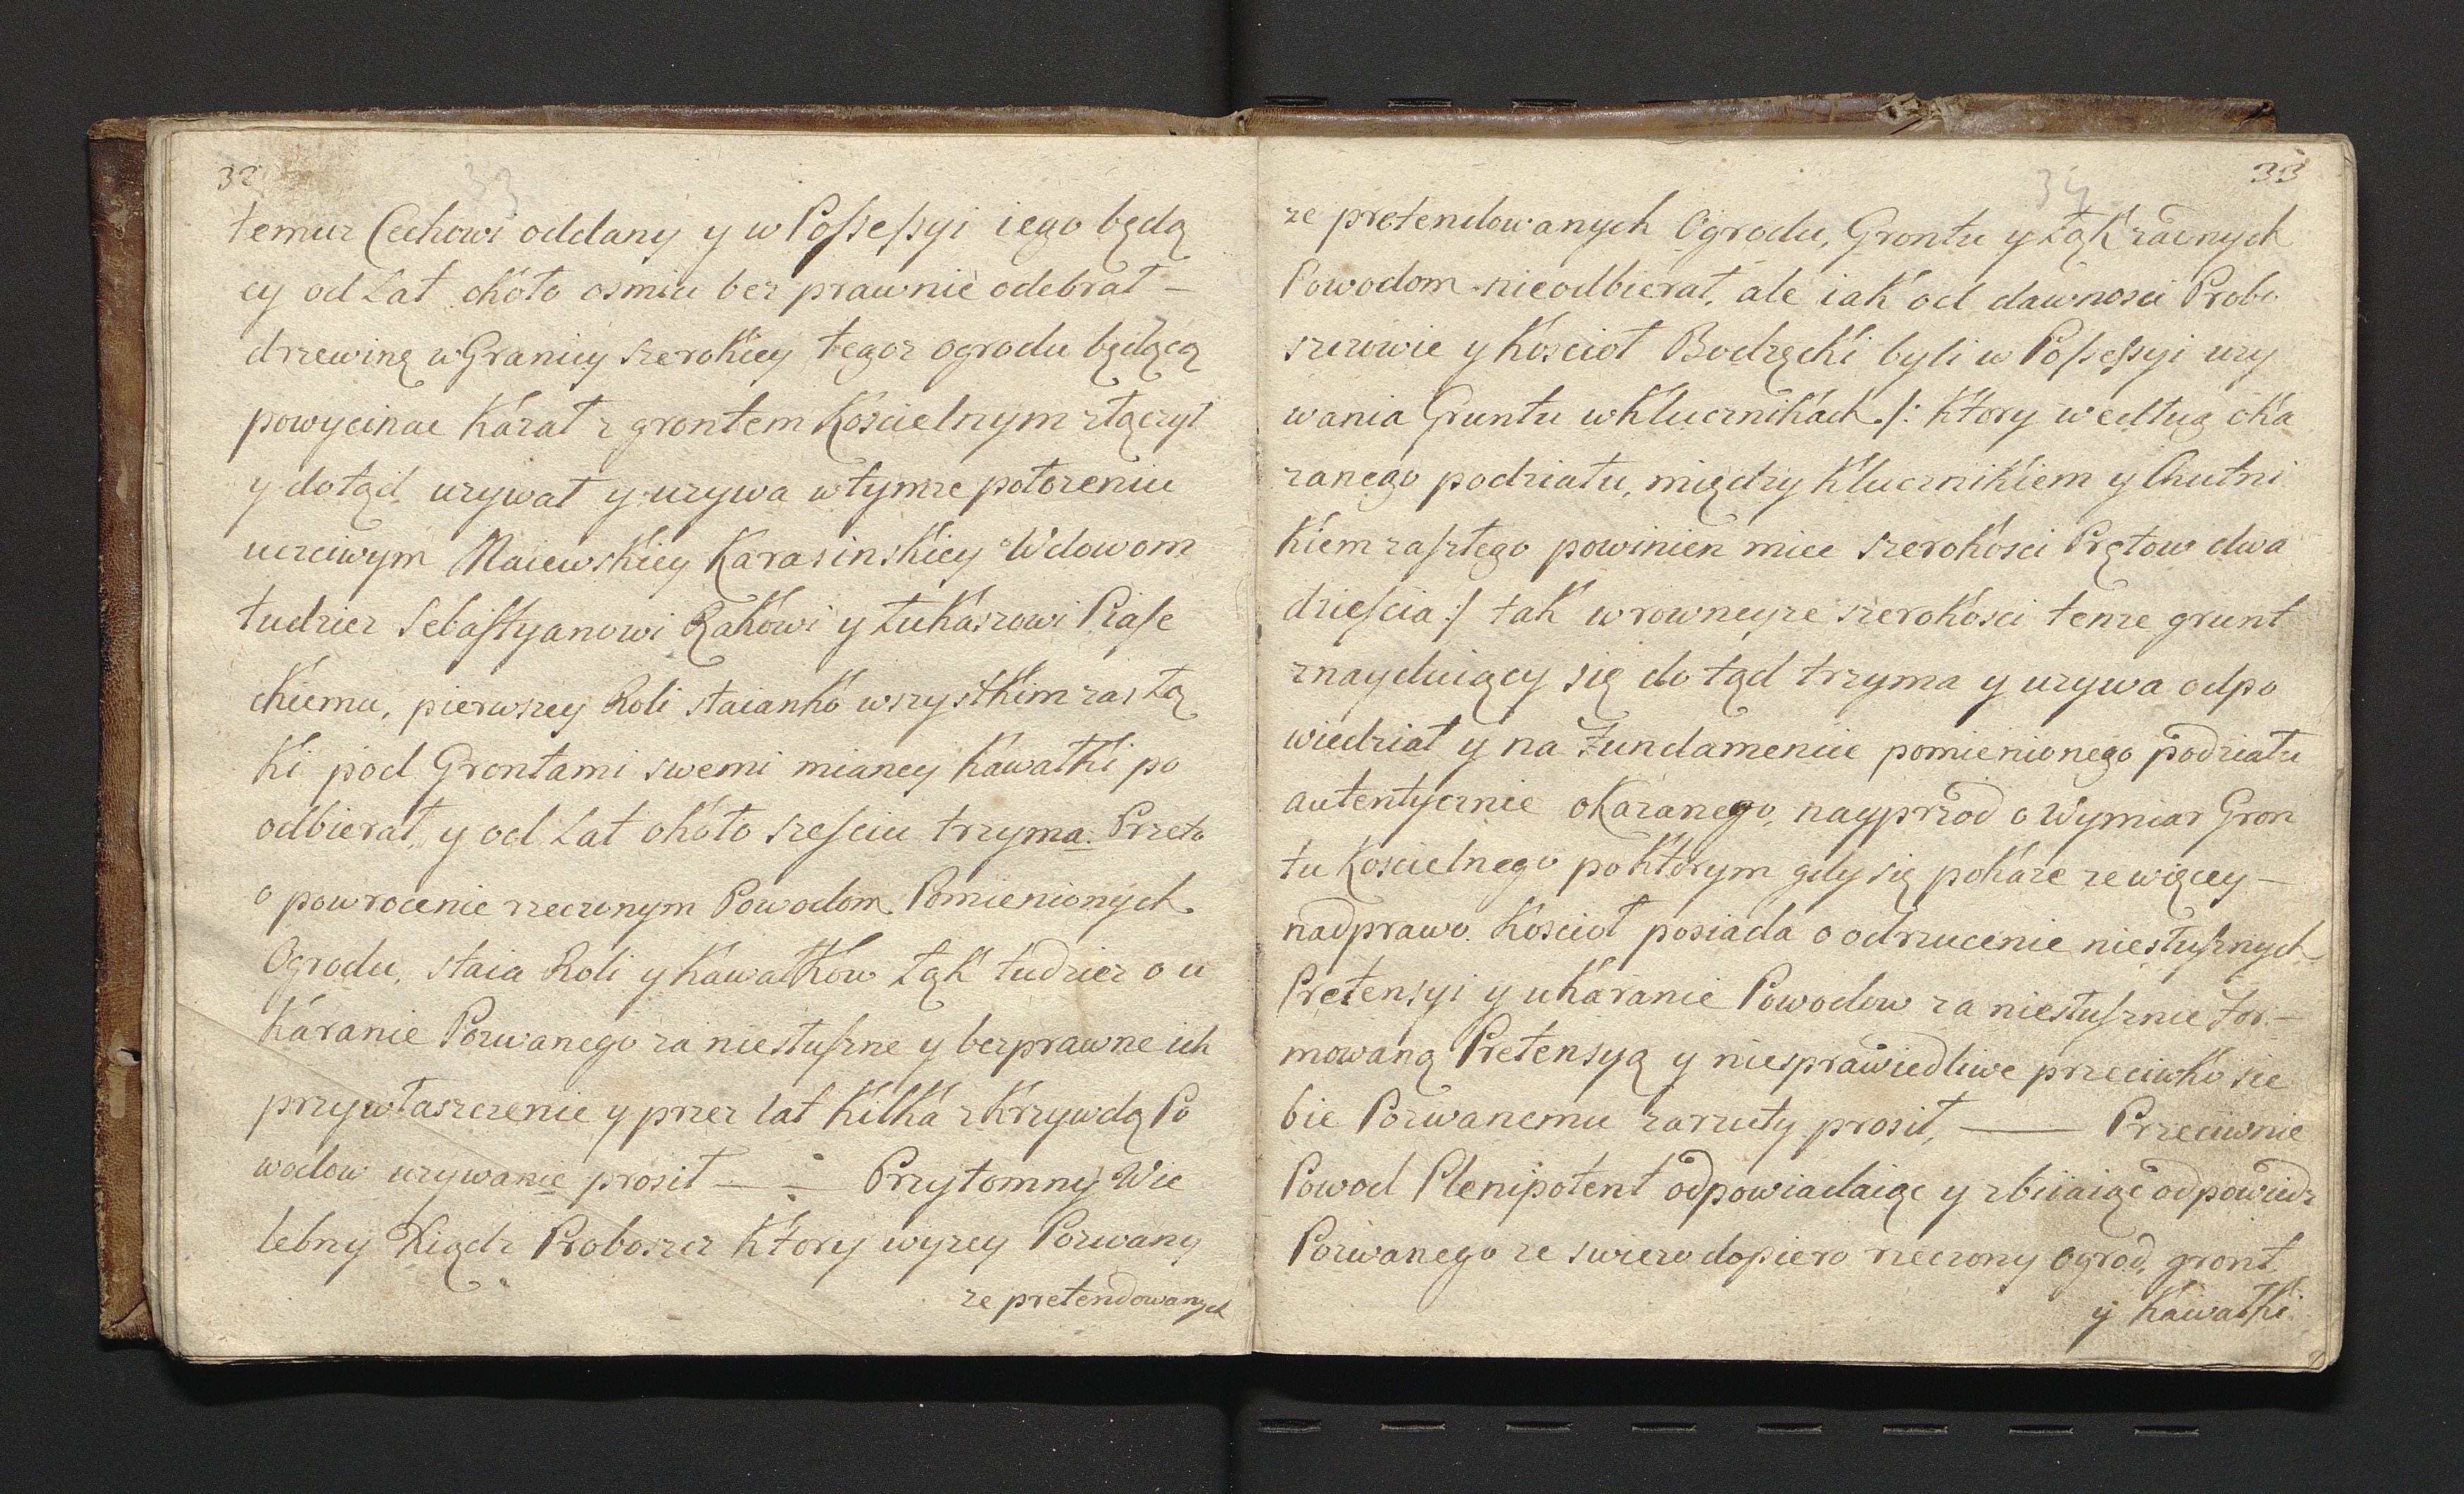 32
33
temuz Cechowi oddany y w Possessyi iego będą
cy od Lat około osmiu bez prawnie odebrał —
drzewinę w Granicy szerokiey tegoz ogrodu będącą
powycinac kazał z grontem Koscielnym złączył
y dotąd uzywał y uzywa w tymze położeniu
uczciwym Maiewskiey Karasinskiey Wdowom
tudziez Sebastyanowi Bąkowi y Łukaszowi Piase
ckiemu, pierwszey Roli staianko wszystkim zas Łą
ki pod Grontami swemi mianey kawałki po
odbierał, y od Lat około szesciu trzyma. Przeto
o powrocenie rzeczonym Powodom Pomienionych
Ogrodu, staia Roli y Kawałkow Łąk tudziez o u
karanie Pozwanego za niesłuszne y bezprawne ich
przywłaszczenie y przez lat kilka z krzywdą Po
wodow uzywanie prosił — — Przytomny Wie
lebny Xiądz Proboszcz ktory wyzey Pozwany
ze pretendowanych
33
34
ze pretendowanych Ogrodu, Grontu y Łąk zadnych
Powodom nieodbierał, ale iak od dawnosci Probo
szczowie y Koscioł Bodzęcki byli w Possessyi uzy
wania Gruntu w Klucznikach /: ktory według oka
zanego podziału, między Klucznikiem y Chutni
kiem zaszłego powinien miec szerokosci Prętow dwa
dziescia :/ tak w rowneyze szerokosci tenze grunt
znayduiący się do tąd trzyma y uzywa odpo
wiedział y na Fundamencie pomienionego podziału
autentycznie okazanego, nayprzod o Wymiar Gron
tu Koscielnego po ktorym gdy się pokaze ze więcey —
nadprawo Koscioł posiada o odrzucenie niesłusznych
Pretensyi y ukaranie Powodow za niesłusznie for —
mowaną Pretensyą y niesprawiedliwe przeciwko sie
bie Pozwanemu zarzuty prosił, — Przeciwnie
Powod Plenipotent odpowiadaiąc y zbiiaiąc odpowiedz
Pozwanego ze swiezo dopiero rzeczony ogrod, gront
y Kawałki